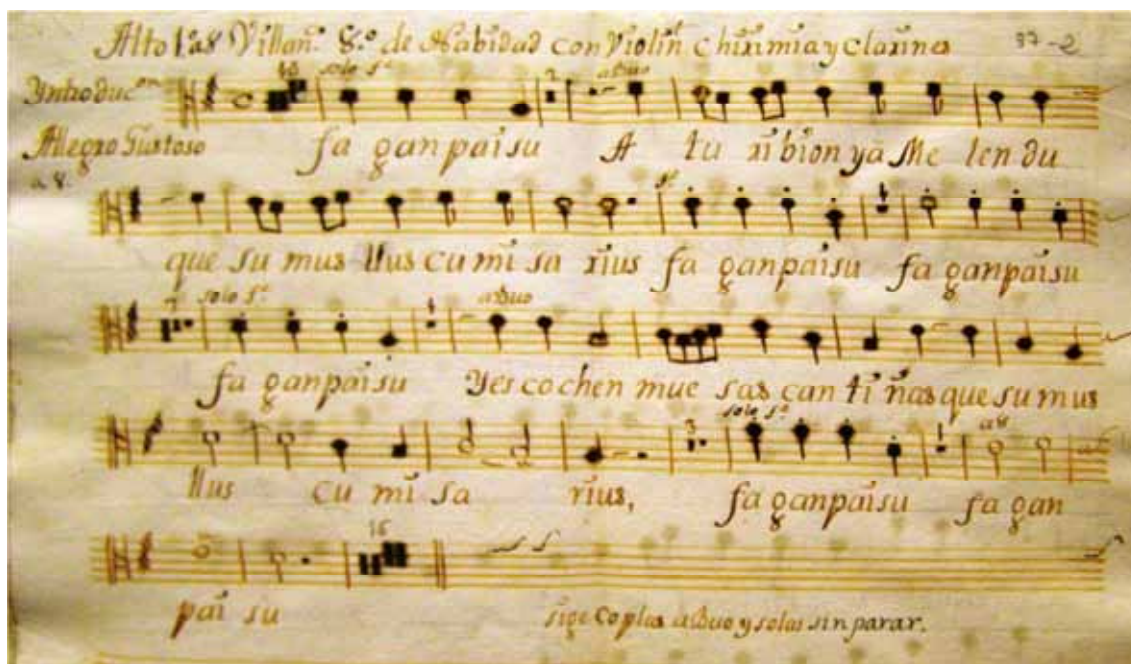 Alto 1.º a 8 Villan.º 8.º de Nabidad con Violin.s chirimia y clarines 37-2
Yntroduc.on 18 solo s.e 2 a duo
Allegro Gustoso fa ganpaisu A tu ri bion ya Me len du
a 8. s.e 1
que su mus llus cu mi sa rius fa ganpaisu fa ganpaisu
7 solo s.e 1 a duo
fa ganpaisu Yes co chen mue sas can ti ñas que su mus
3 solo s.e 1 a 8
llus cu mi sa rius, fa ganpaisu fa gan
16
pai su sige coplas a duo y solas sin parar.